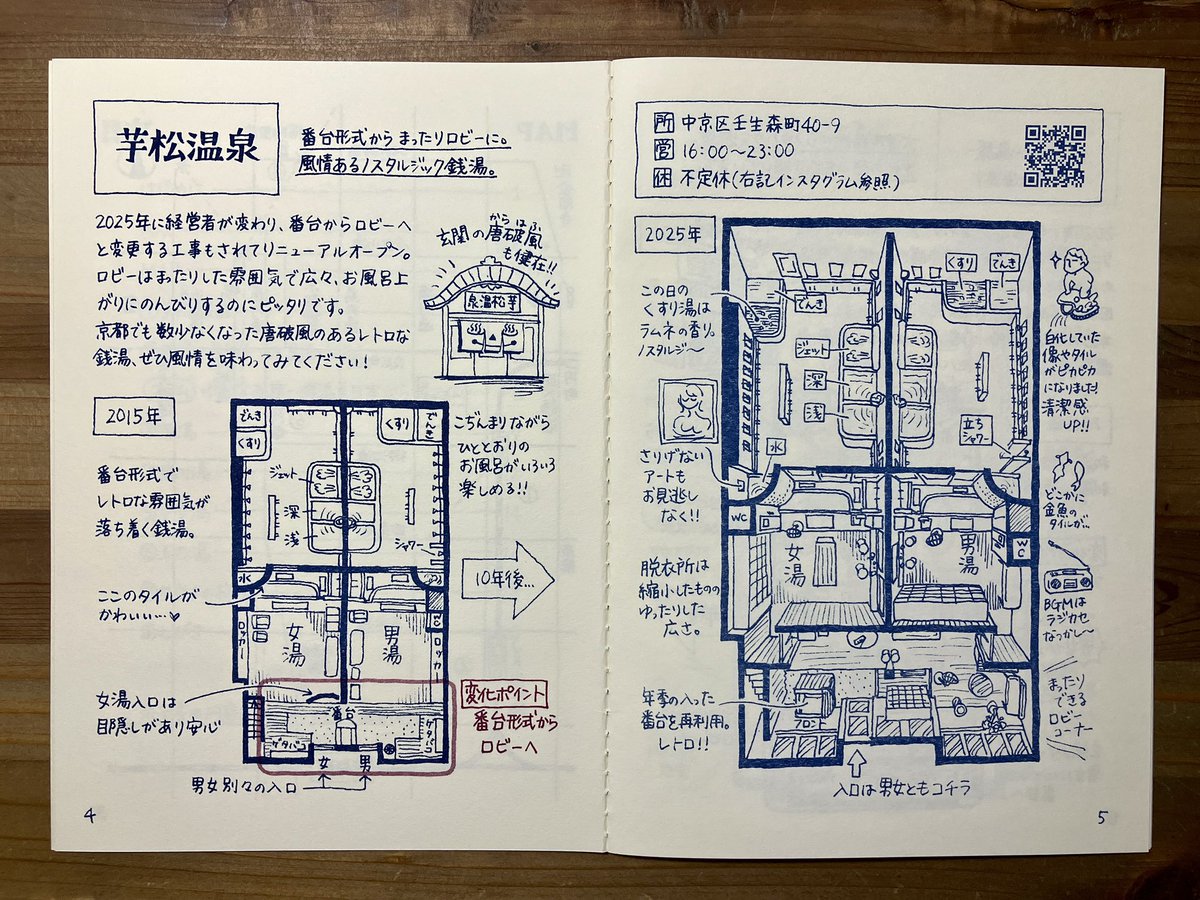 芋松温泉
番台形式からまったりロビーに。
風情あるノスタルジック銭湯。
2025年に経営者が変わり、番台からロビーへ
と変更する工事もされてリニューアルオープン。
ロビーはまったりした雰囲気で広々、お風呂上
がりにのんびりするのにピッタリです。
京都でも数少なくなった唐破風のあるレトロな
銭湯、ぜひ風情を味わってみてください!
からはふ
玄関の唐破風
も健在!!
泉温松芋
2015年
番台形式で
レトロな雰囲気が
落ち着く銭湯。
ここのタイルが
かわいい…♥
女湯入口は
目隠しがあり安心
でんき
くすり
くすり
でんき
ジェット
深
浅
シャワー
水
ロッカー
女湯
男湯
WC
ロッカー
番台
ゲタバコ
ゲタバコ
女
男
男女別々の入口
こぢんまりながら
ひととおりの
お風呂がいろいろ
楽しめる!!
10年後…
変化ポイント
番台形式から
ロビーへ
4
所 中京区壬生森町40-9
営 16:00~23:00
休 不定休(右記インスタグラム参照)
2025年
この日の
くすり湯は
ラムネの香り。
ノスタルジ~
さりげない
アートも
お見逃し
なく!!
脱衣所は
縮小したものの
ゆったりした
広さ。
年季の入った
番台を再利用。
レトロ!!
でんき
くすり
でんき
ジェット
深
浅
水
立ち
シャワー
WC
女湯
男湯
WC
フロント
入口は男女ともコチラ
白化していた
像やタイル
がピカピカ
になりました!
清潔感
UP!!
どこかに
金魚の
タイルが…
BGMは
ラジカセ
なつかし~
まったり
できる
ロビー
コーナー
5